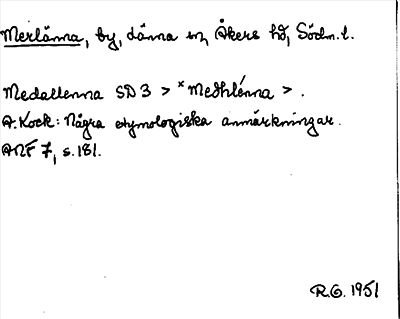 Merlänna, by, Länna sn, Åkers hd, Södm. l.
Medallenna SD 3 > *Medhlénna > .
A. Kock: Några etymologiska anmärkningar.
ANF 7, s. 181.
R.G. 1951